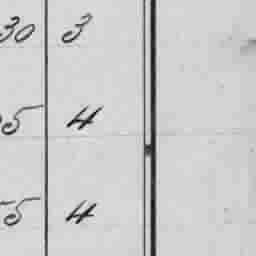 30 3
5 4
5 4